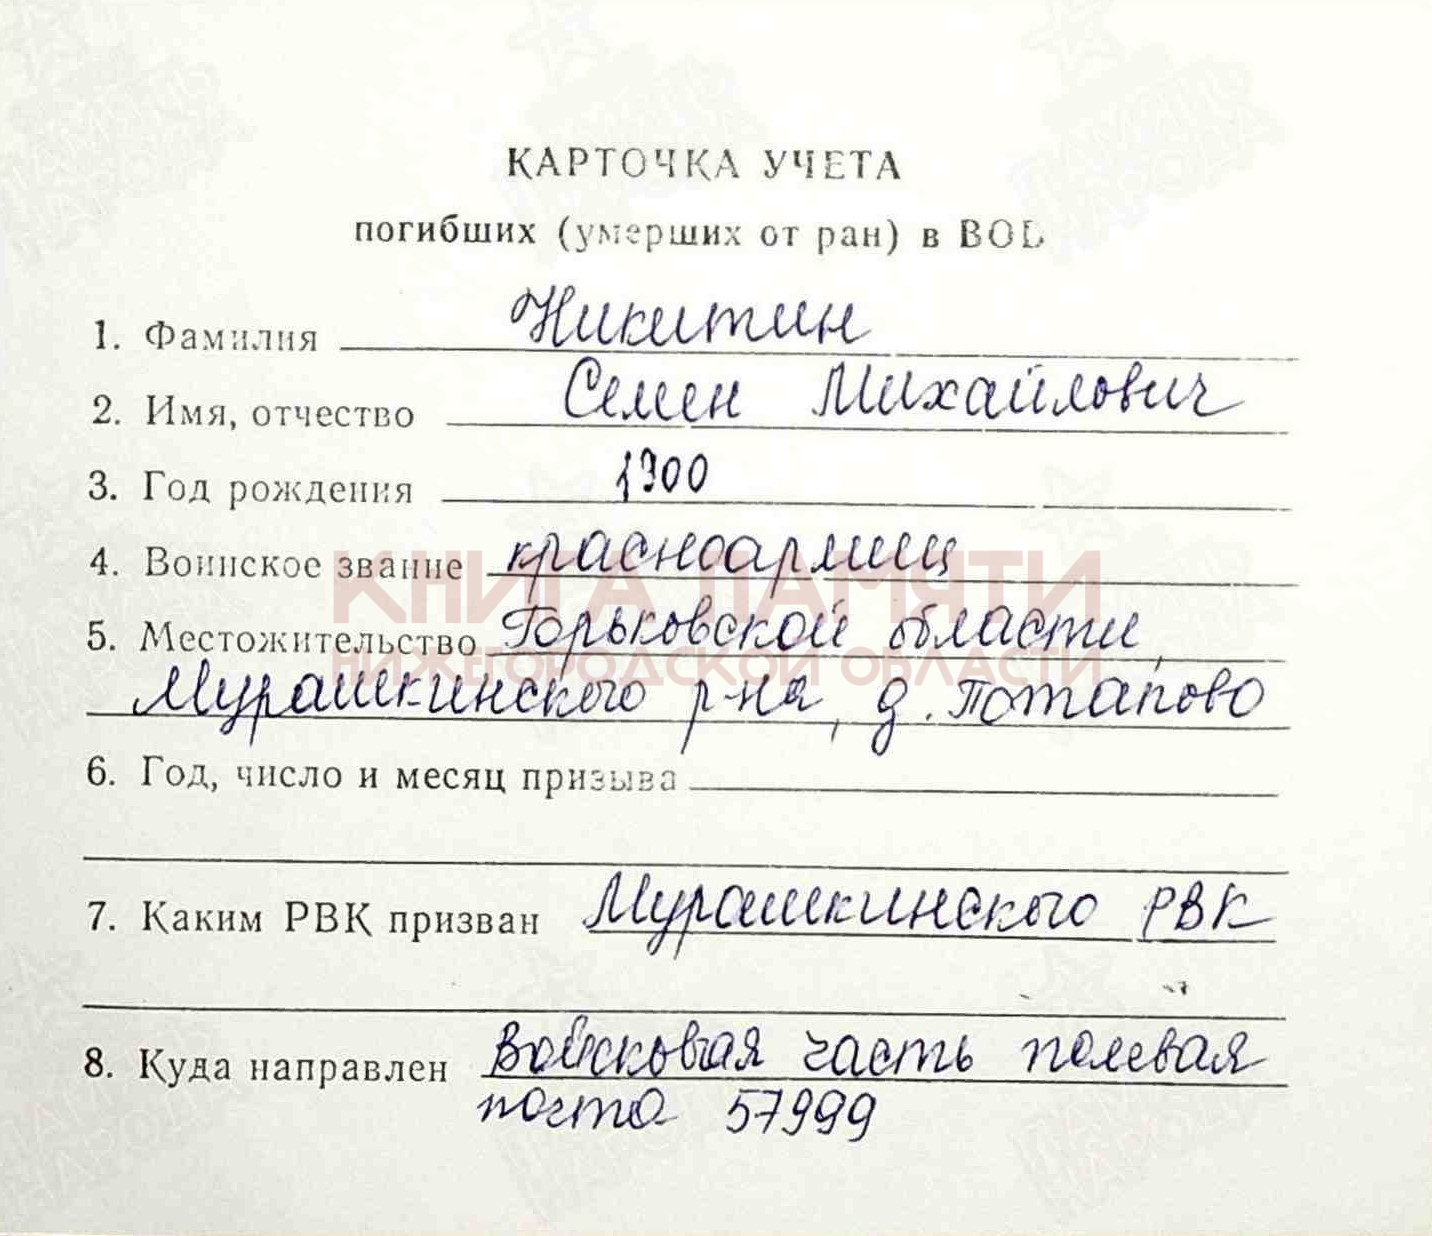 КАРТОЧКА УЧЕТА
погибших (умерших от ран) в ВОВ
1. Фамилия Никитин
2. Имя, отчество Семен Михайлович
3. Год рождения 1900
4. Воинское звание красноармеец
КНИГА ПАМЯТИ
5. Местожительство Горьковской области,
НИЖЕГОРОДСКОЙ ОБЛАСТИ
Мурашкинского р-на, д. Потапово
6. Год, число и месяц призыва
7. Каким РВК призван Мурашкинского РВК
8. Куда направлен Войсковая часть полевая
почта 57999